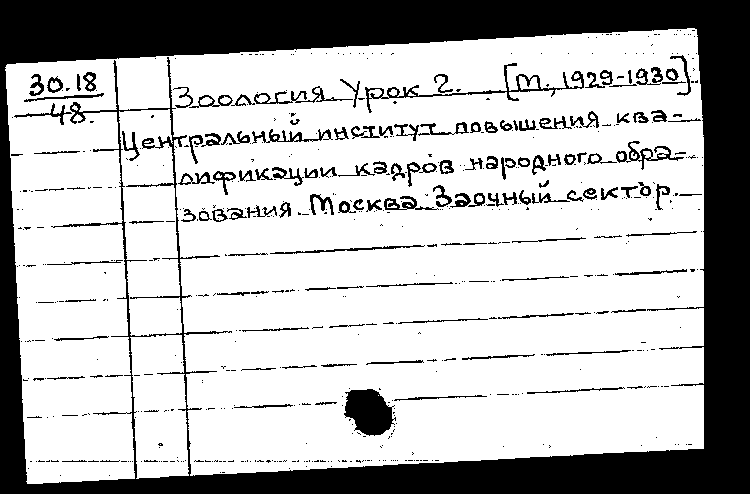 30.18
48.
Зоология. Урок 2. [М., 1929-1930]
Центральный институт повышения ква-
лификации кадров народного обра-
зования. Москва. Заочный сектор.